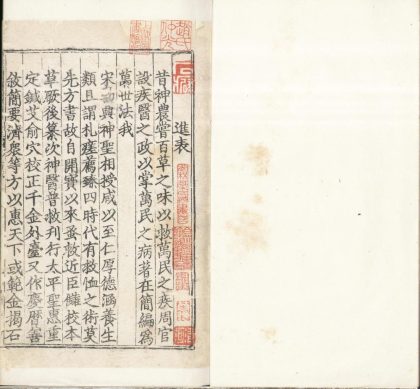 進表
昔神農嘗百草之味以救萬民之疾周官
設疾醫之政以掌萬民之病著在簡編為
萬世法我
宋勃興神聖相授咸以至仁厚德涵養生
類且謂札瘥薦臻四時代有救恤之術莫
先方書故自開寶以來蚤敕近臣讎校本
草厥後纂次神醫普救刊行太平聖惠重
定鍼艾俞穴校正千金外臺又作慶曆善
救簡要濟衆等方以惠天下或範金揭石